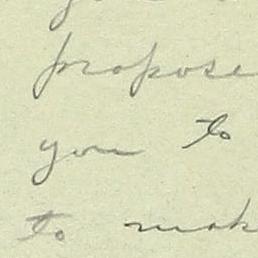 propose
you to
to mak